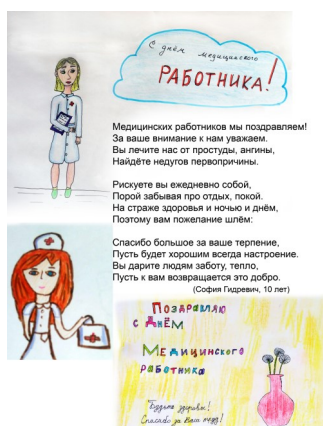 С днём медицинского
РАБОТНИКА!
Медицинских работников мы поздравляем!
За ваше внимание к нам уважаем.
Вы лечите нас от простуды, ангины,
Найдёте недугов первопричины.
Рискуете вы ежедневно собой,
Порой забывая про отдых, покой.
На страже здоровья и ночью и днём,
Поэтому вам пожелание шлём:
Спасибо большое за ваше терпение,
Пусть будет хорошим всегда настроение.
Вы дарите людям заботу, тепло,
Пусть к вам возвращается это добро.
(София Гидревич, 10 лет)
Поздравляю
с Днём
Медицинского
работника
Будьте здоровы!
Спасибо за Ваш труд!